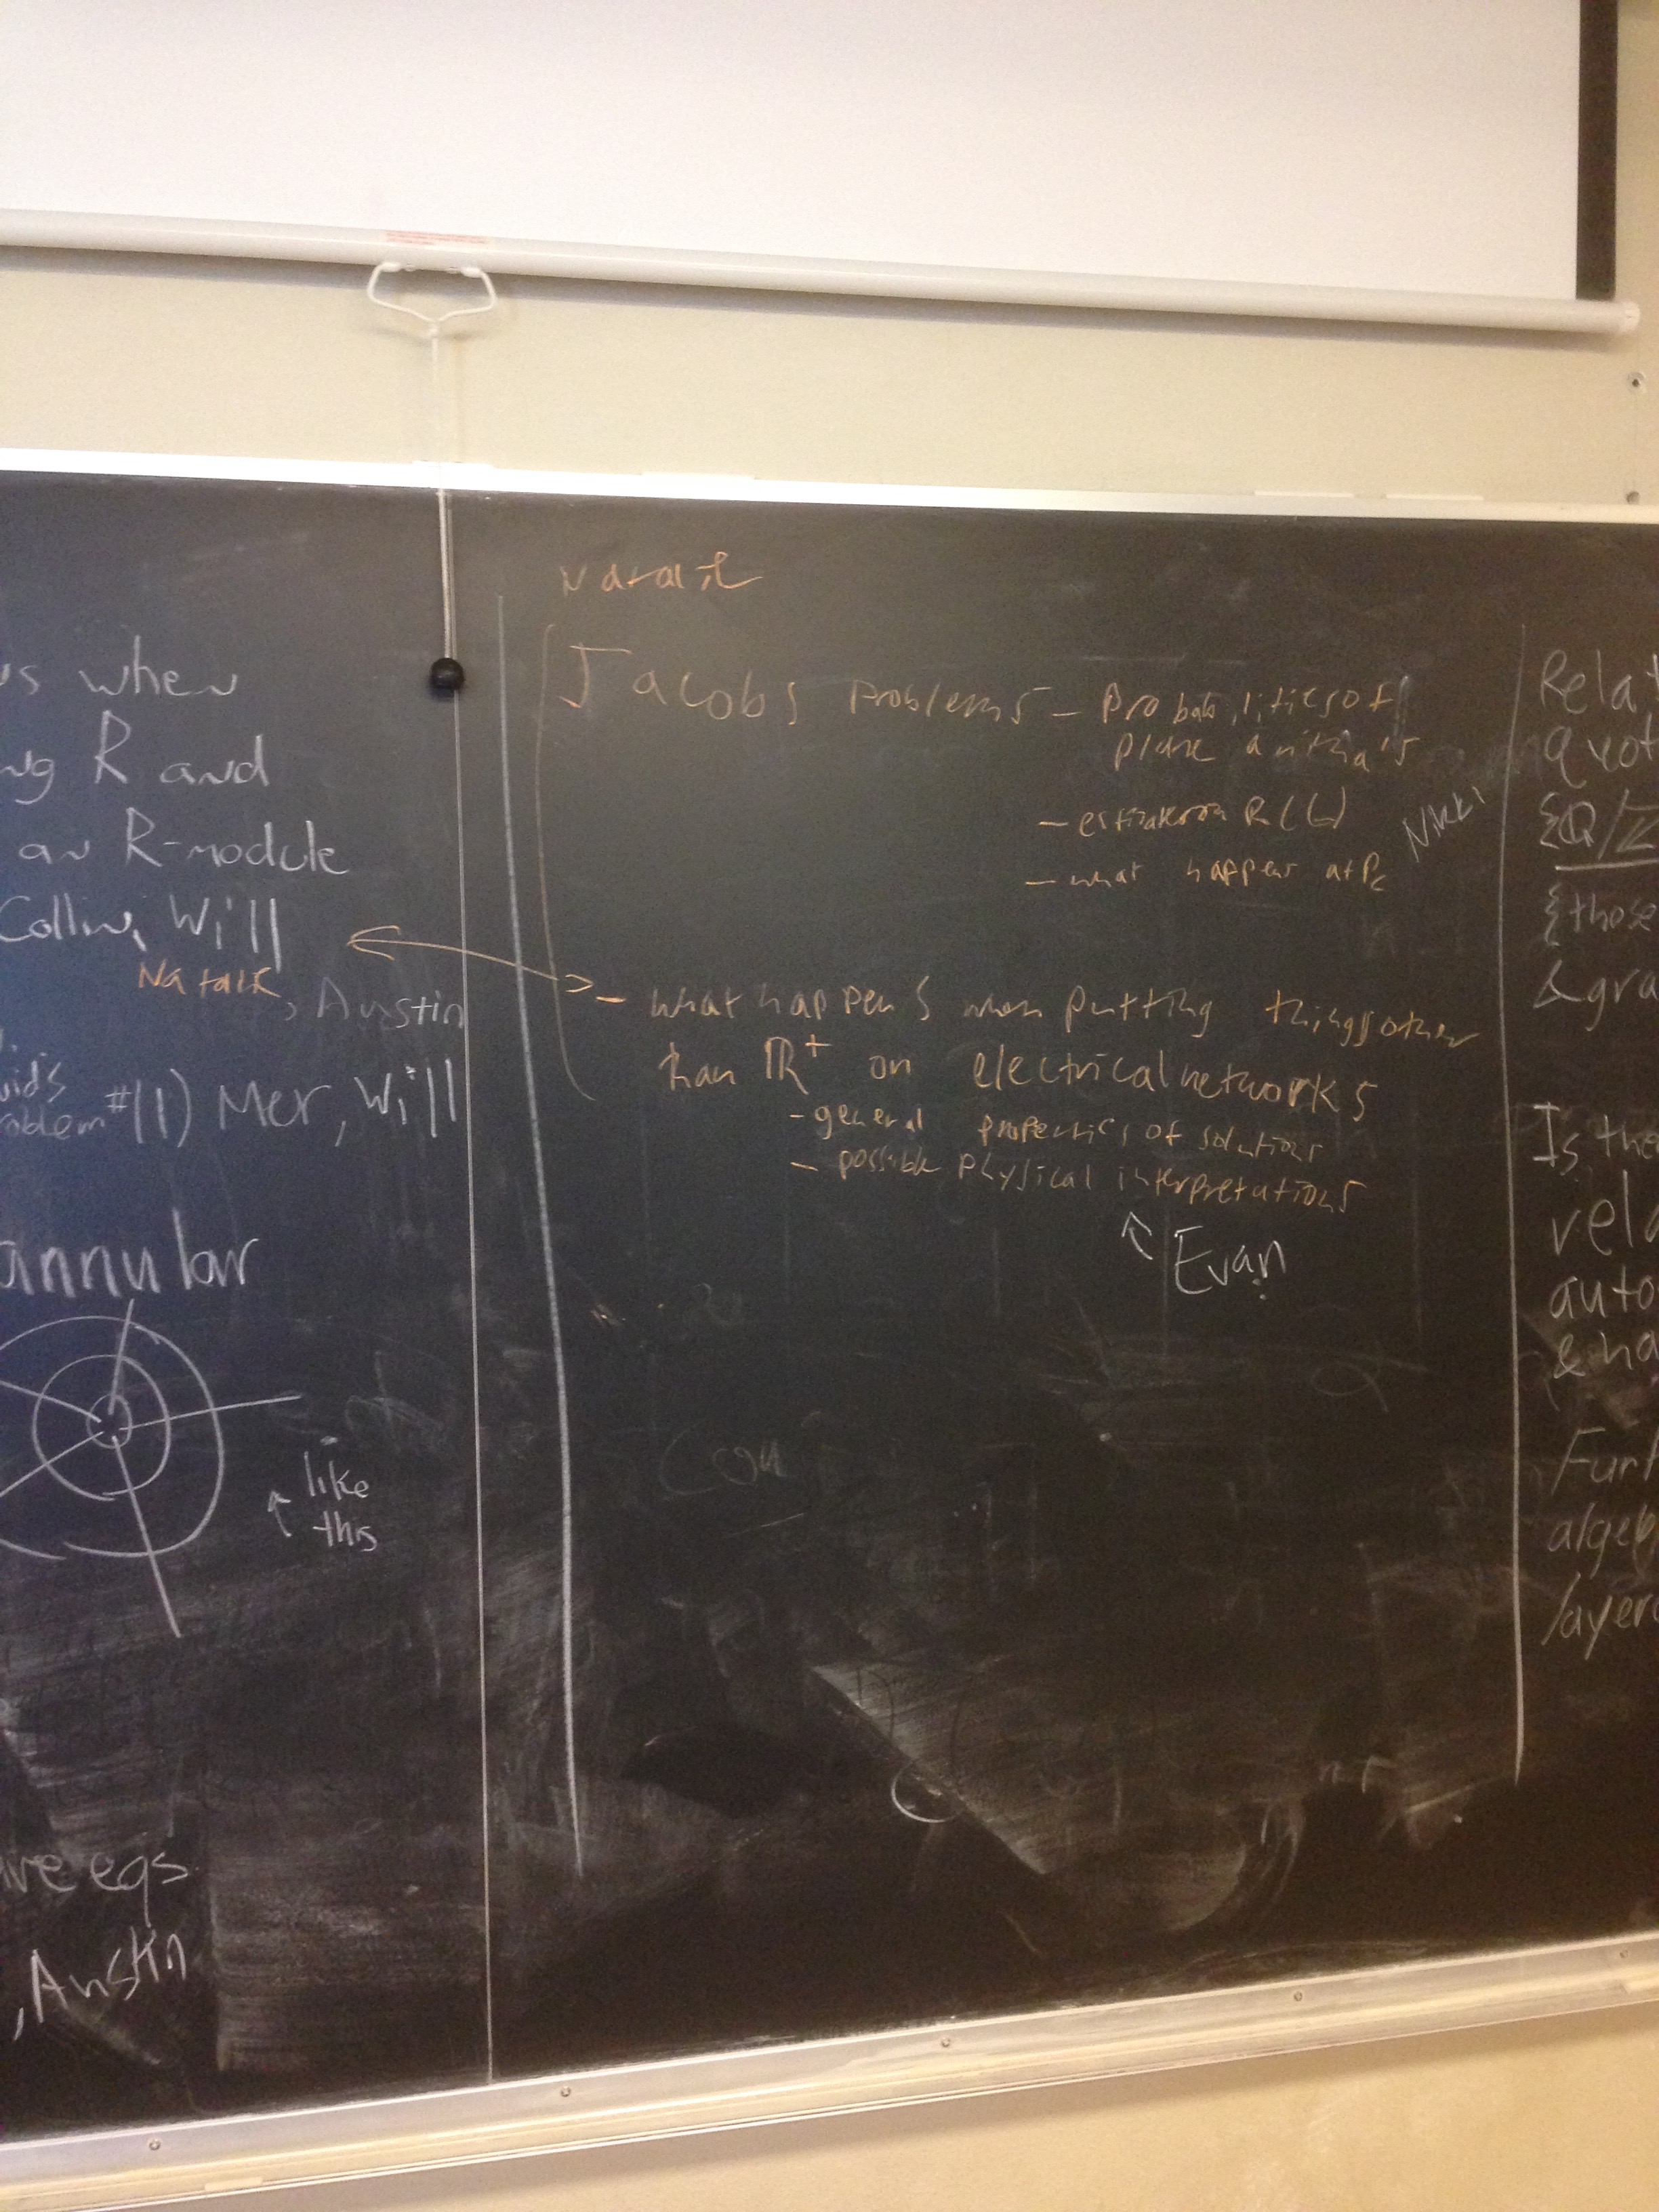 us when
ng R and
an R-module
Collin, Will
Natalie, Austin
uid's
roblem #(1) Mer, Will
annular
↑ like
this
ve eqs
, Austin
Natalie
Jacobs Problems - Probabilities of
plane
- estimate on R(L)
- what happens at Pc
Nikki
- what happens when putting things other
than ℝ⁺ on electrical networks
- general properties of solutions
- possible physical interpretations
↑ Evan
Relat
quot
{Q/Z
{those
& gra
Is the
rela
auto
& ha
Furt
algeb
layer